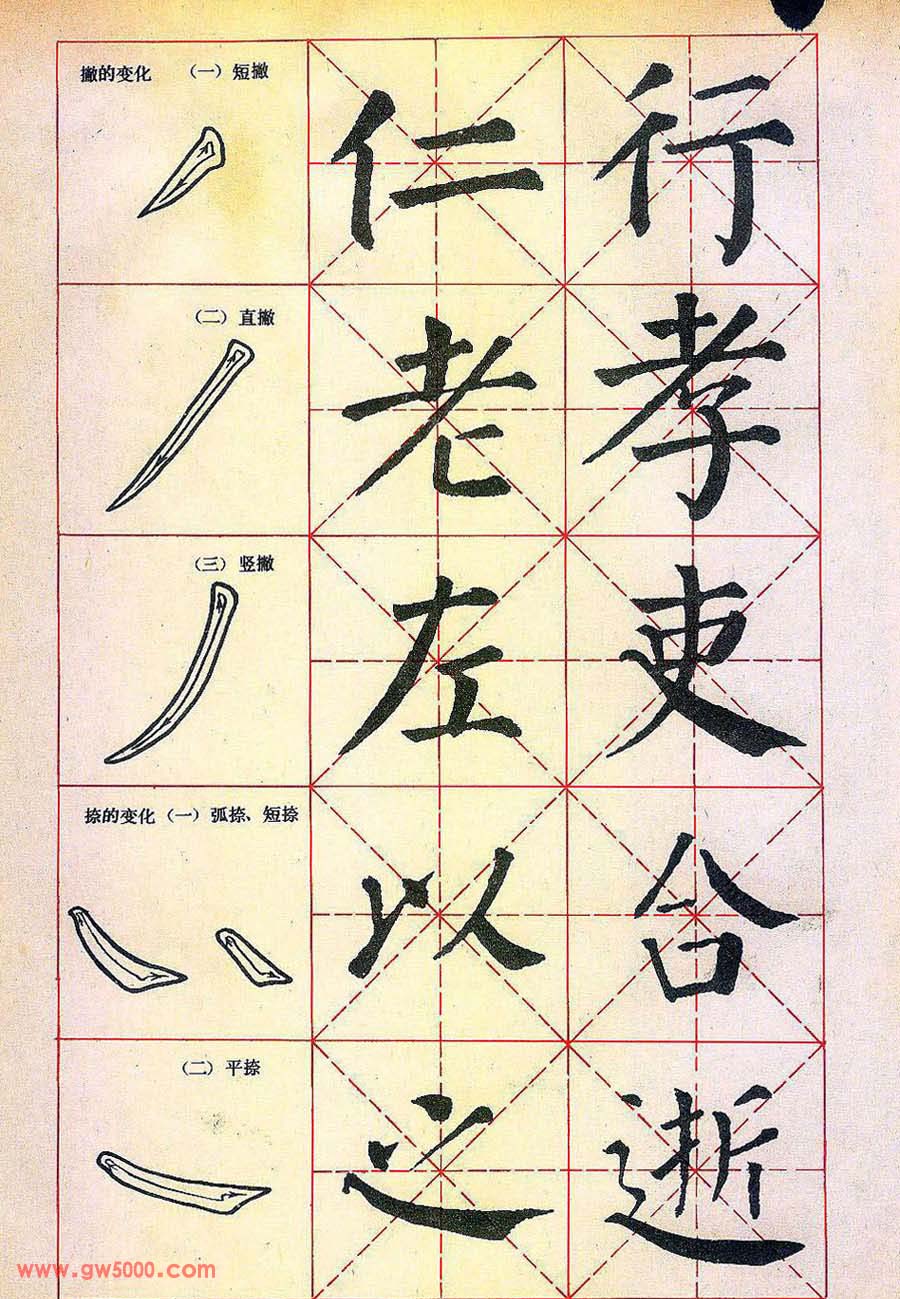 撇的变化 (一) 短撇
仁 行
(二) 直撇
老 孝
(三) 竖撇
左 吏
捺的变化 (一) 弧捺、短捺
以 合
(二) 平捺
之 逝
www.gw5000.com